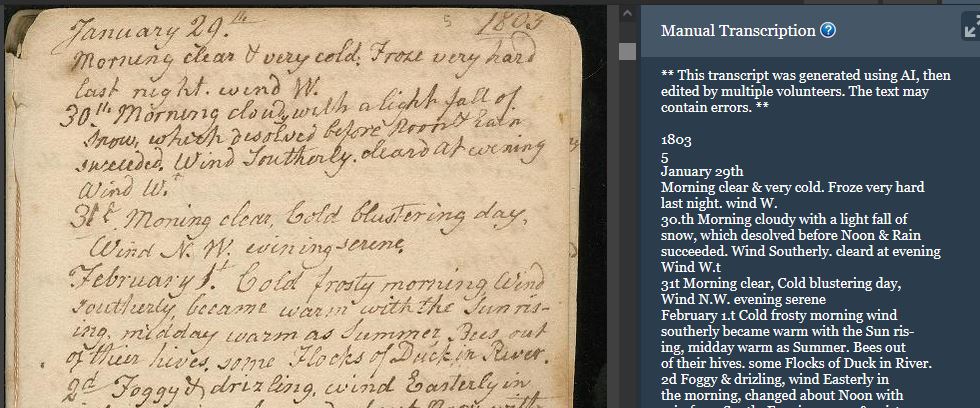 January 29.th 5 1803
Morning clear & very cold. Froze very hard
last night. wind W.
30.th Morning cloudy with a light fall of
snow, which desolved before Noon & Rain
succeeded. Wind Southerly. cleard at evening
Wind W.t
31t Moning clear, Cold blustering day,
Wind N. W. evining serene
February 1.t Cold frosty morning Wind
southerly became warm with the Sun ris-
ing, midday warm as Summer. Bees out
of their hives. some Flocks of Duck in River.
2d Foggy & drizling, wind Easterly in
Manual Transcription ?
** This transcript was generated using AI, then
edited by multiple volunteers. The text may
contain errors. **
1803
5
January 29th
Morning clear & very cold. Froze very hard
last night. wind W.
30.th Morning cloudy with a light fall of
snow, which desolved before Noon & Rain
succeeded. Wind Southerly. cleard at evening
Wind W.t
31t Morning clear, Cold blustering day,
Wind N.W. evening serene
February 1.t Cold frosty morning wind
southerly became warm with the Sun ris-
ing, midday warm as Summer. Bees out
of their hives. some Flocks of Duck in River.
2d Foggy & drizling, wind Easterly in
the morning, changed about Noon with